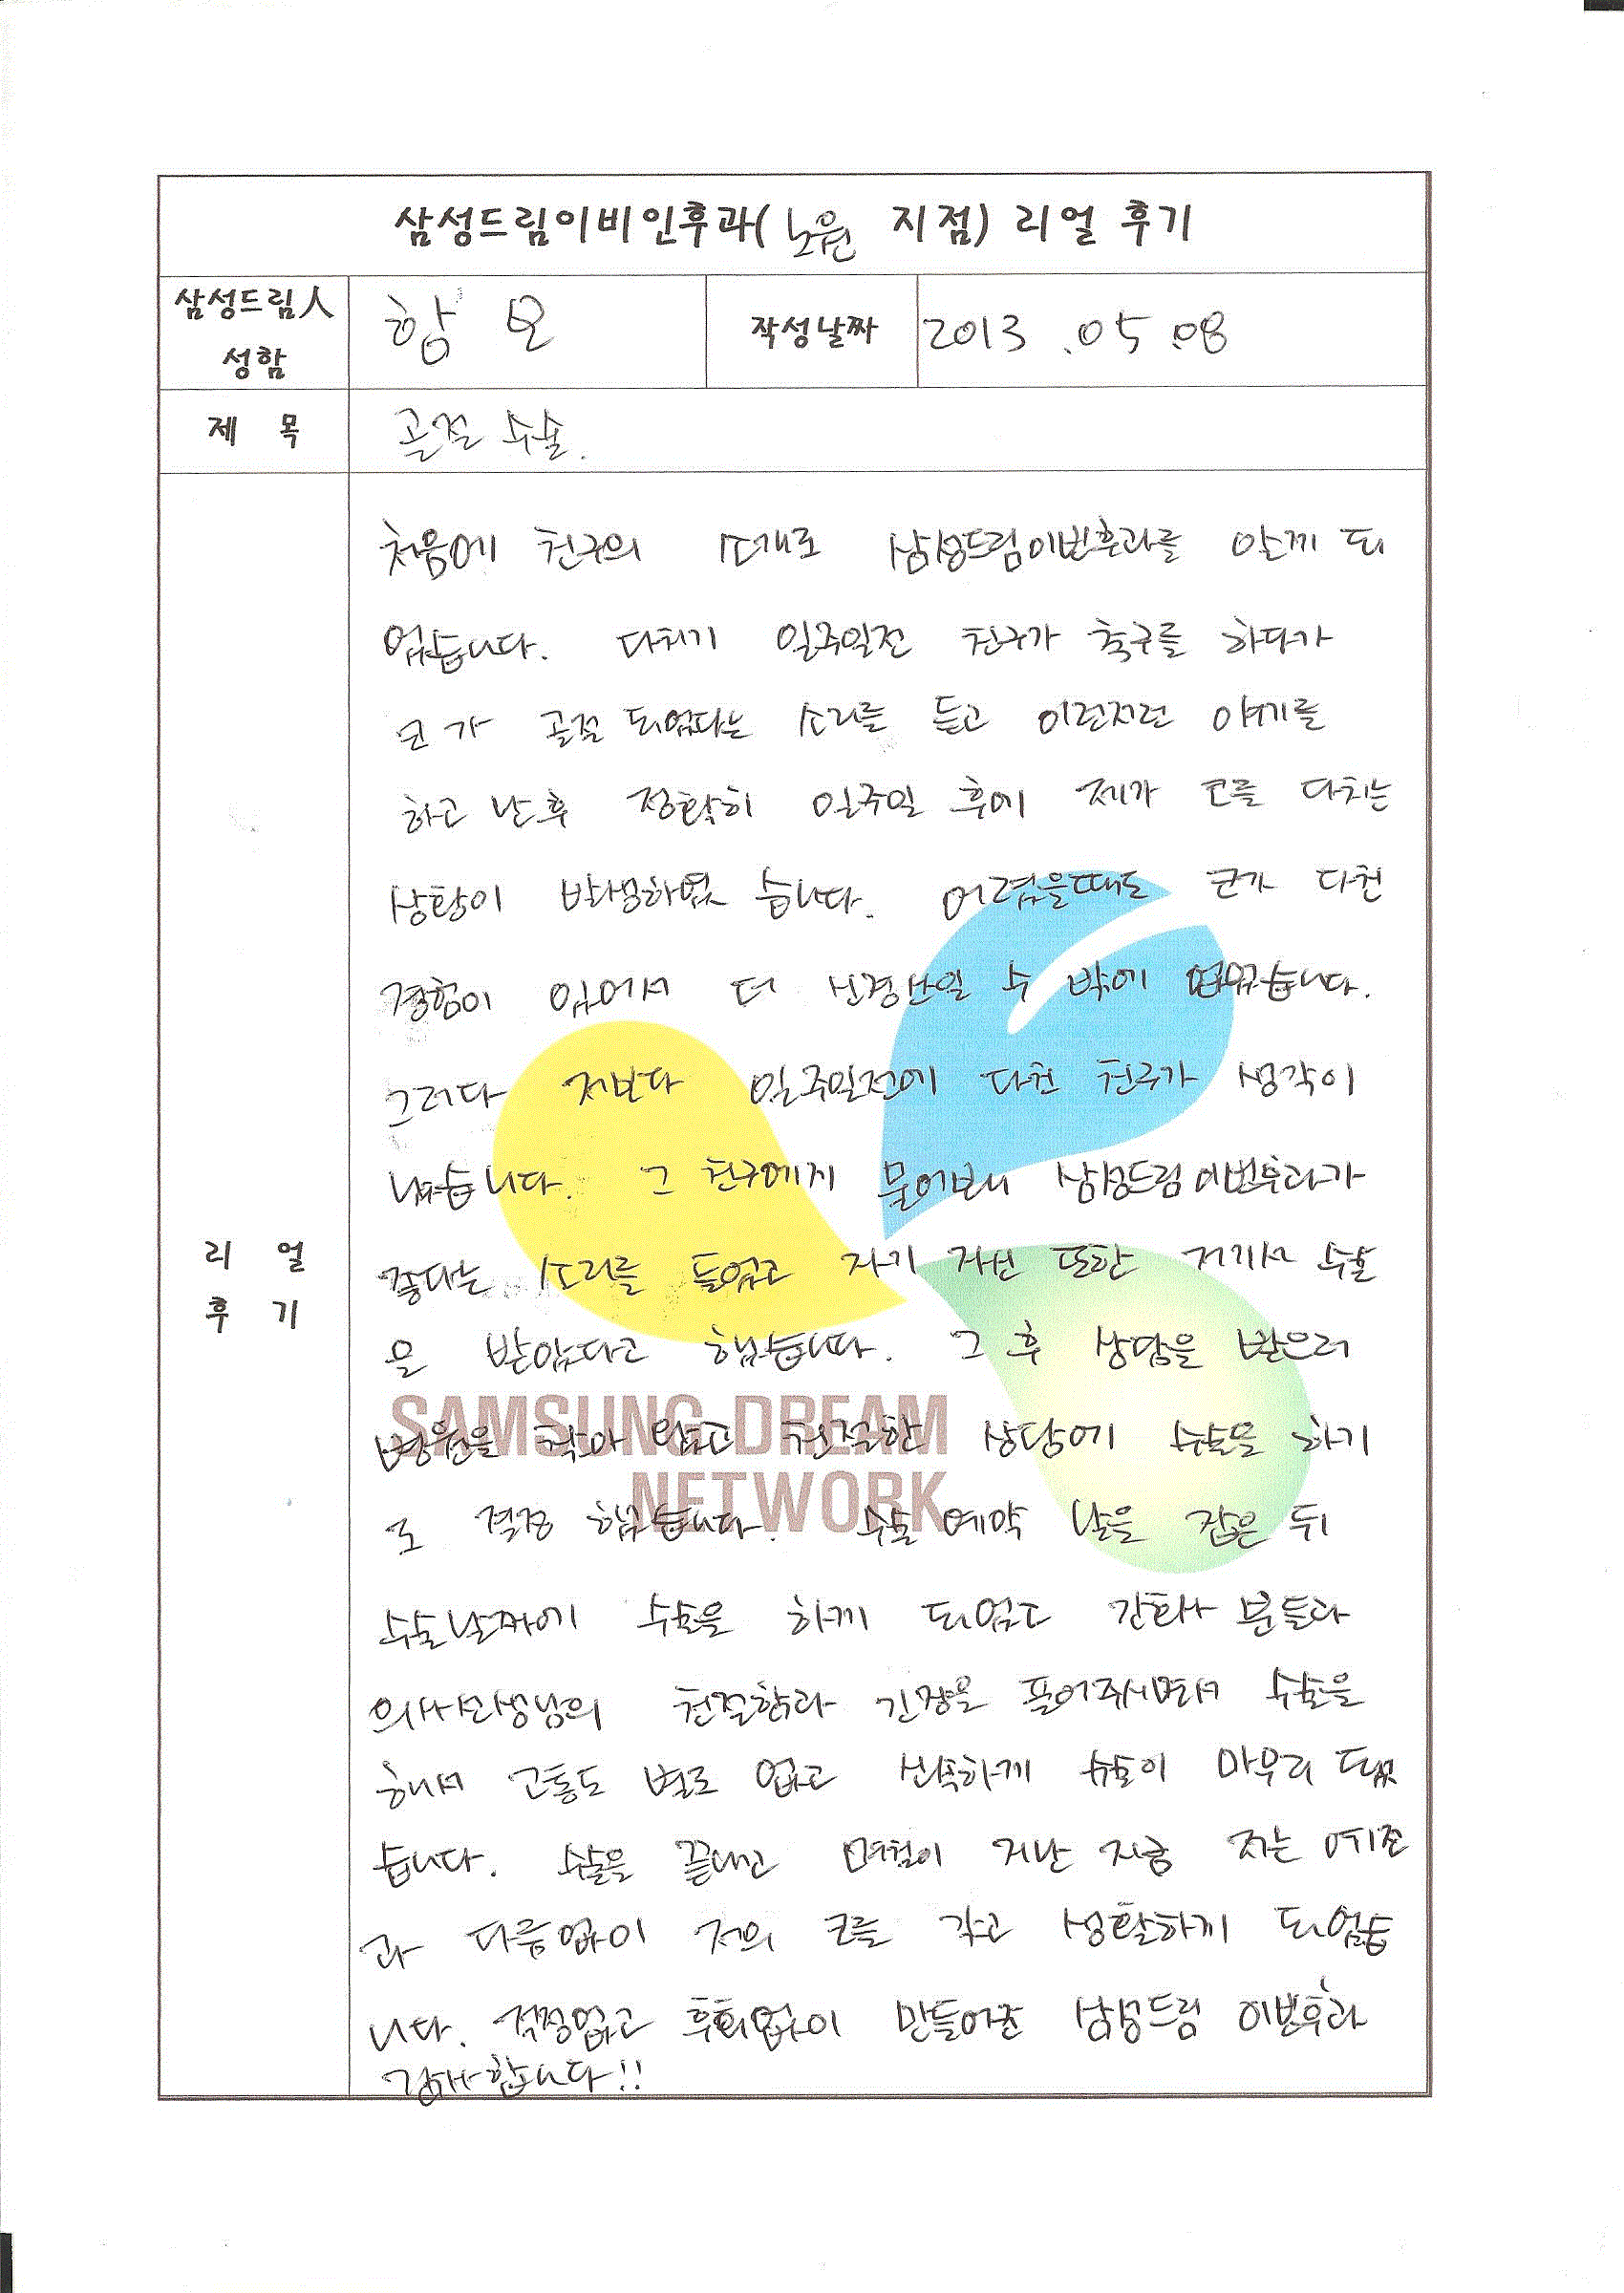 삼성드림이비인후과(노원 지점) 리얼 후기
삼성드림人 성함
함 모
작성날짜
2013.05.08
제 목
골절 수술.
리 얼
후 기
처음에 친구의 소개로 삼성드림이빈후과를 알게 되
었습니다. 다치기 일주일전 친구가 축구를 하다가
코가 골절 되었다는 소리를 듣고 이런저런 얘기를
하고 난 후 정확히 일주일 후에 제가 코를 다치는
상황이 발생하였습니다. 어렸을때도 코가 다친
경험이 있어서 더 신경쓰일 수 밖에 없었습니다.
그러다 저보다 일주일전에 다친 친구가 생각이
났습니다. 그 친구에게 물어보니 삼성드림이빈후과가
좋다는 소리를 들었고 자기 자신 또한 거기서 수술
을 받았다고 했습니다. 그 후 상담을 받으러
병원을 찾아 왔고 친절한 상담에 수술을 하기
로 결정 했습니다. 수술 예약 날을 잡은 뒤
수술날짜에 수술을 하게 되었고 간호사 분들과
의사선생님의 친절함과 긴장을 풀어주시면서 수술을
해서 고통도 별로 없고 신속하게 수술이 마무리 됐
습니다. 수술을 끝내고 며칠이 지난 지금 저는 예전
과 다름없이 저의 코를 갖고 생활하게 되었습
니다. 걱정없고 후회없이 만들어준 삼성드림 이빈후과
감사합니다!!
SAMSUNG DREAM
NETWORK